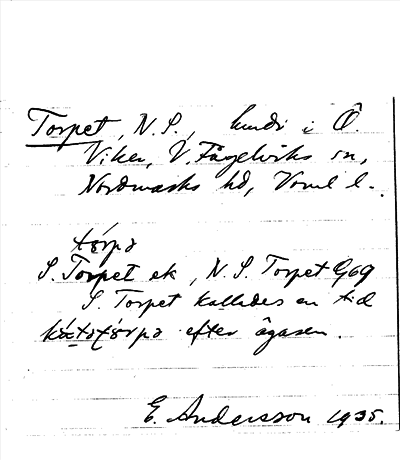 Torpet, N. S., hmdr i Ö.
Viker, V. Fågelviks sn,
Nordmarks hd, Vrml l.
tórpə
S. Torpet ek, N. S. Torpet G69
S. Torpet kallades en tid
efter ägaren.
E. Andersson 1935.